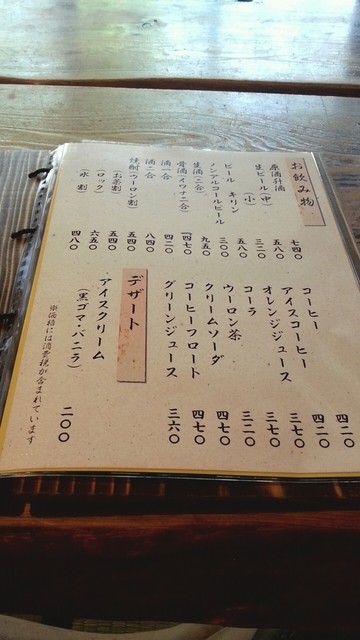 お飲み物
原酒升酒 七四〇
生ビール（中） 五八〇
（小） 三二〇
ビール キリン 五八〇
ノンアルコールビール 三〇〇
生酒（二合） 九五〇
骨酒（イワナ二合） 一四七〇
酒一合 四二〇
酒二合 八四〇
焼酎（ウーロン割） 五四〇
（お茶割） 五四〇
（ロック） 六五〇
（水割） 四八〇
コーヒー 四二〇
アイスコーヒー 四二〇
オレンジジュース 三七〇
コーラ 三七〇
ウーロン茶 三二〇
クリームソーダ 四七〇
コーヒーフロート 四七〇
グリーンジュース 三六〇
デザート
アイスクリーム
（黒ゴマ・バニラ） 二〇〇
※価格には消費税が含まれています